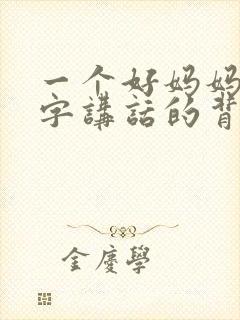 一个好妈妈
字講話的背
金慶學